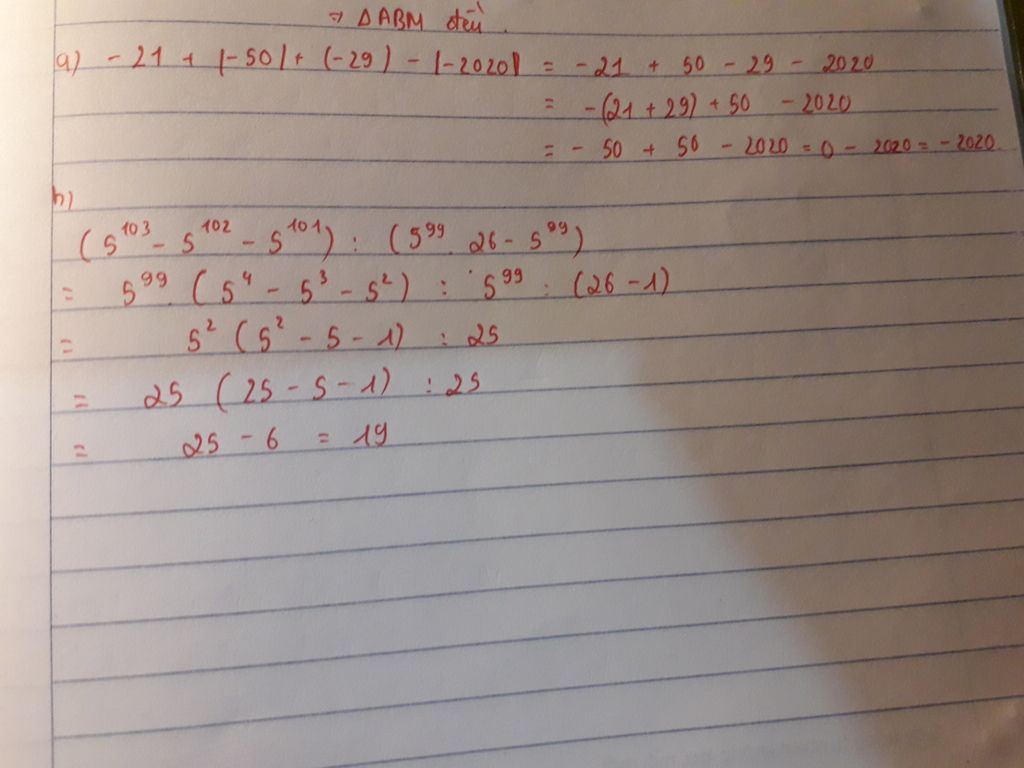 ⇒ ΔABM đều.
a) - 21 + |-50| + (-29) - |-2020| = -21 + 50 - 29 - 2020
= -(21 + 29) + 50 - 2020
= - 50 + 50 - 2020 = 0 - 2020 = - 2020.
b)
(5^103 - 5^102 - 5^101) : (5^99 . 26 - 5^99)
= 5^99 . (5^4 - 5^3 - 5^2) : 5^99 : (26 - 1)
= 5^2 (5^2 - 5 - 1) : 25
= 25 (25 - 5 - 1) : 25
= 25 - 6 = 19